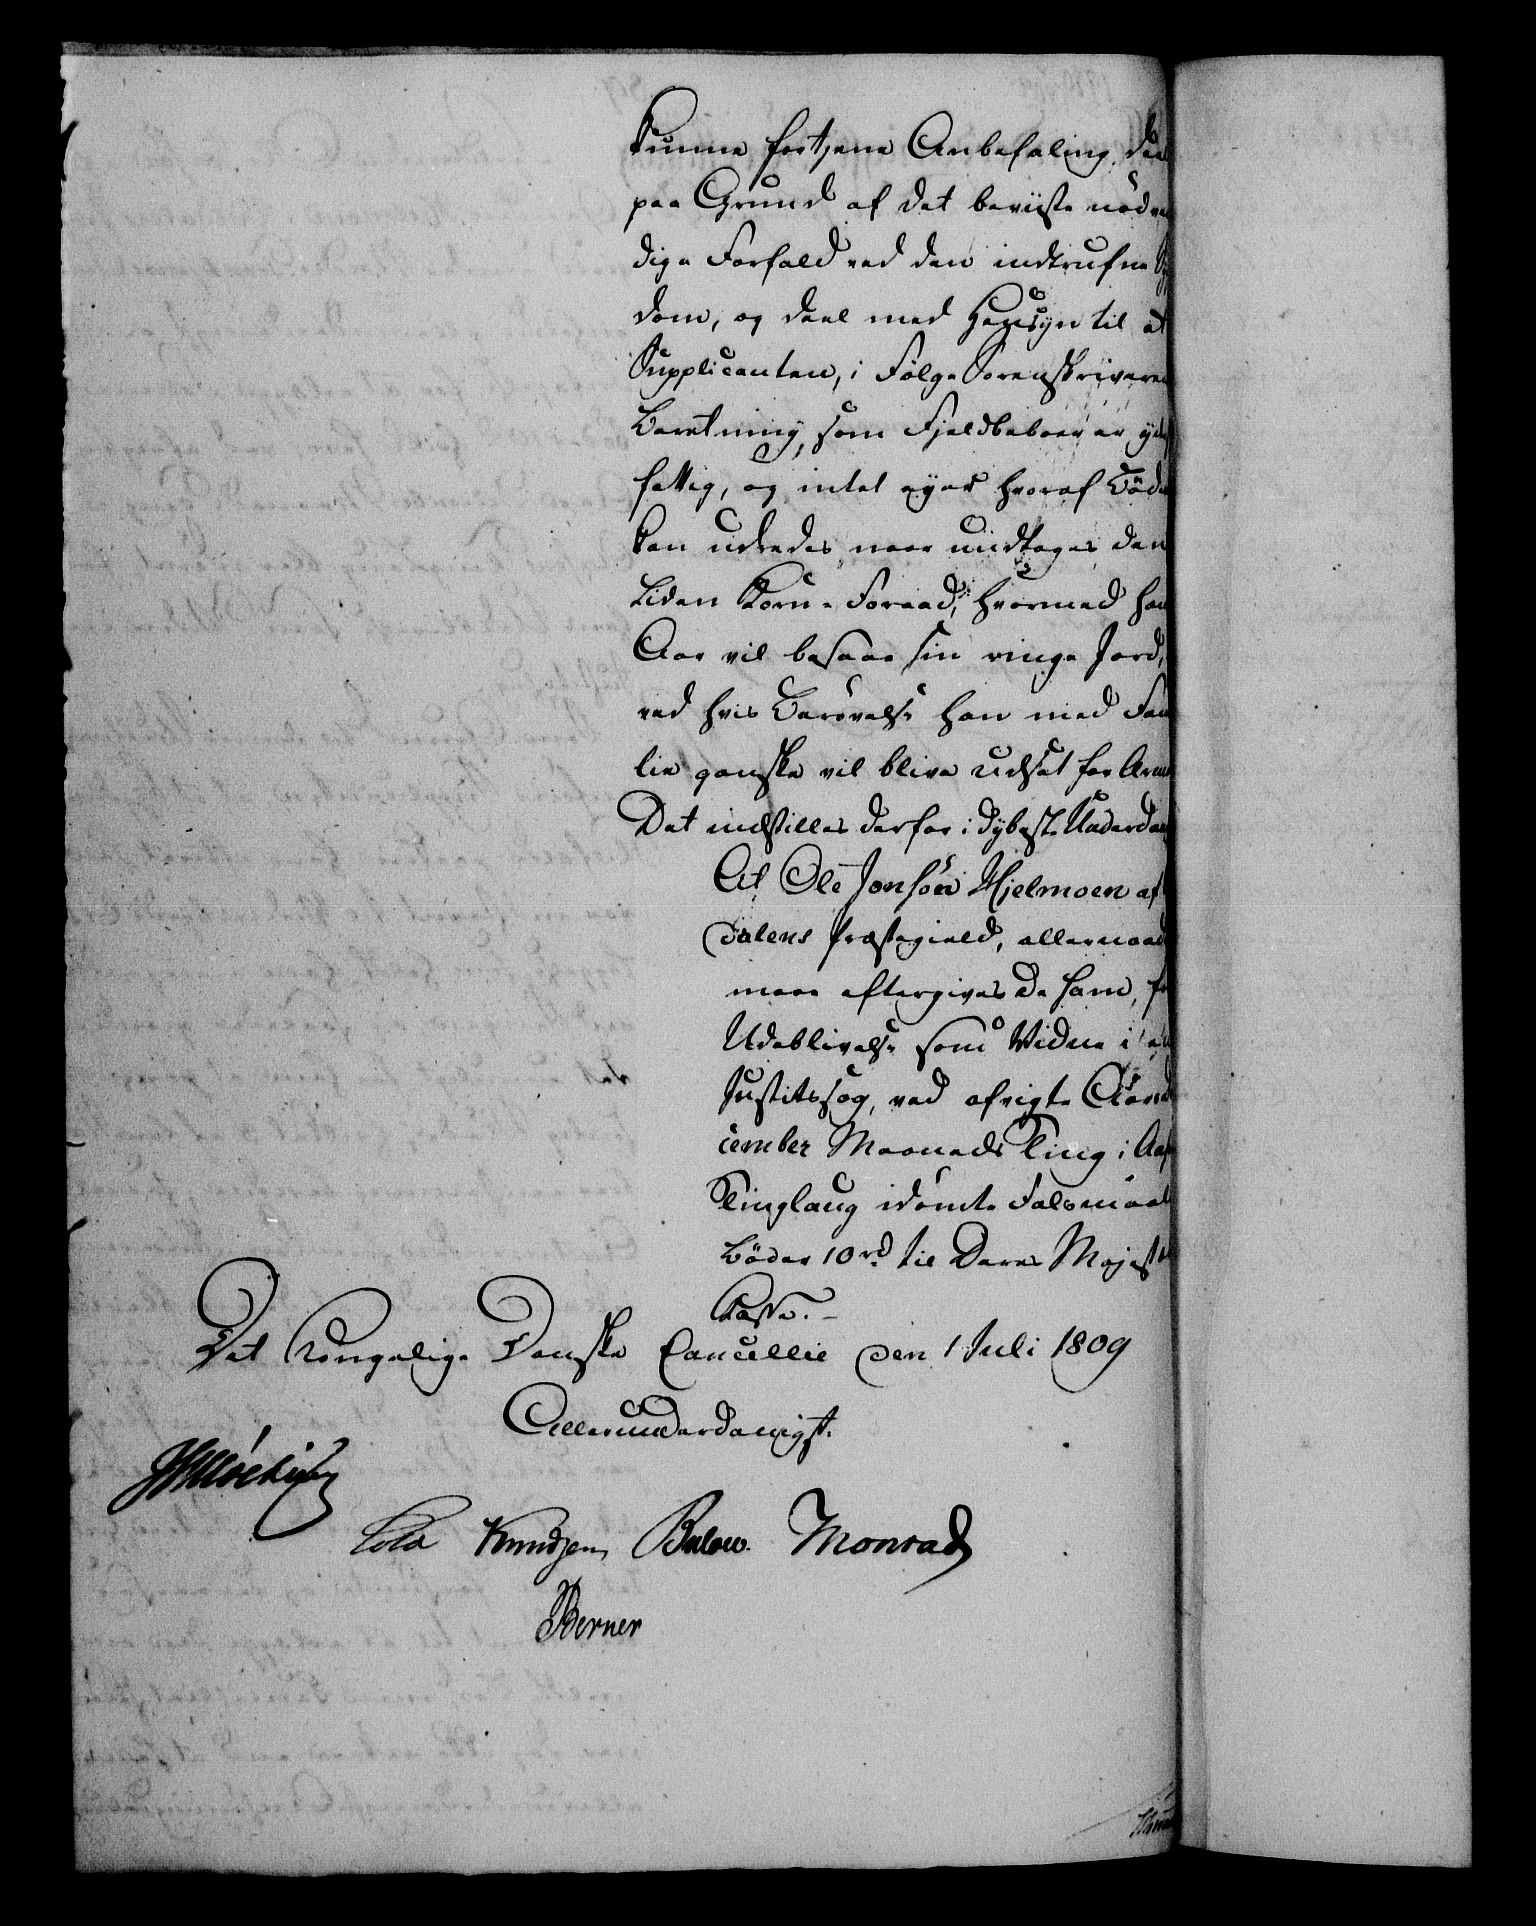 kunne fortjene Anbefaling, deel
paa Grund af det beviiste nødven
dige Forfald ved den indtrufne Syg
dom, og deel med Hensyn til at
Supplicanten, i Følge Sorenskriveren
Beretning, som Fjeldbeboer er yder
fattig, og intet eyer hvoraf Böde
kan udredes, naar undtages den
liden Korn-Foraad, hvormed han
Aar vil besaae sin ringe Jord,
ved hvis Berøvelse han med Fam
lie ganske vil blive udsat for Arm
Det indstilles derfor i dybeste Underdan
At Ole Jonsön Hjelmoen af
dalens Præstegield, allernaad
maae eftergives de ham, for
Udeblivelse som Vidne i en
Justitssag, ved afvigte Aars
cember Maaneds Ting i Aaf
Tinglaug idømte Falsmaals
Böder 10 rd. til Deres Majest
Kasse. –
Det Kongelige Danske Cancellie den 1 Juli 1809
Allerunderdanigst.
Cold Knudsen Bülow. Monrad
Berner